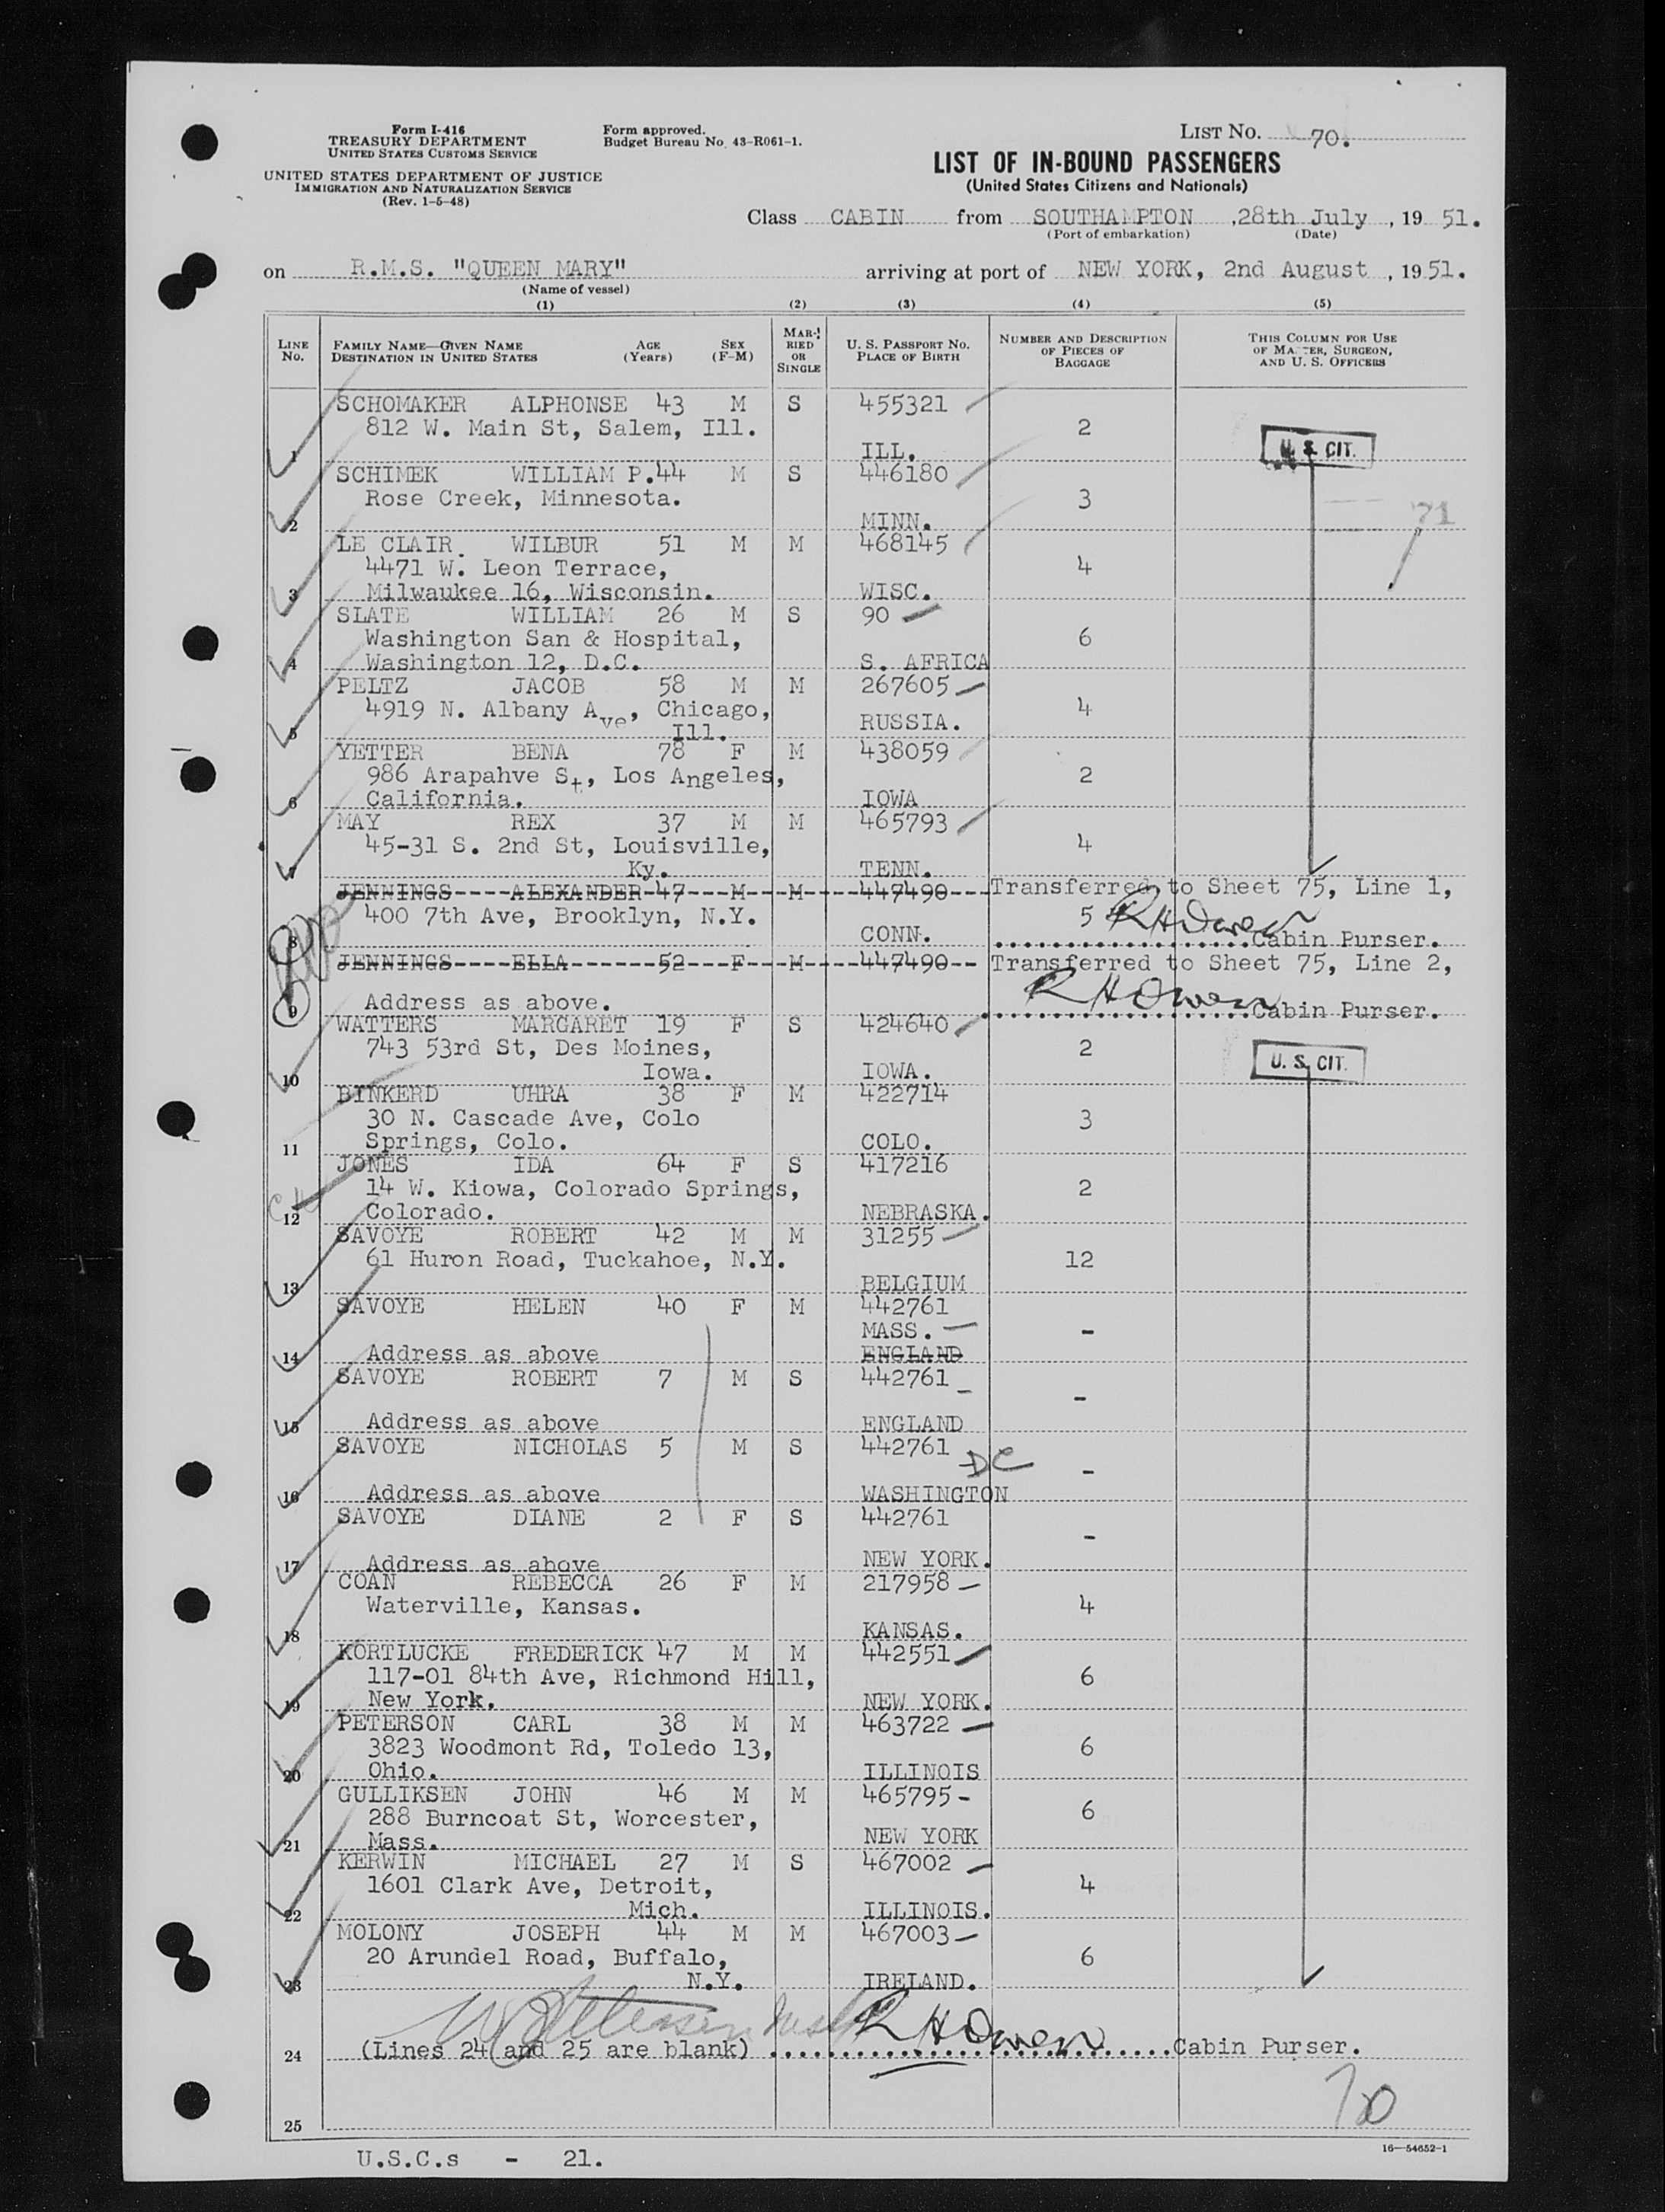 Form I-416
TREASURY DEPARTMENT
UNITED STATES CUSTOMS SERVICE
UNITED STATES DEPARTMENT OF JUSTICE
IMMIGRATION AND NATURALIZATION SERVICE
(Rev. 1-5-48)
Form approved.
Budget Bureau No. 43-R061-1.
LIST NO. 70.
LIST OF IN-BOUND PASSENGERS
(United States Citizens and Nationals)
Class CABIN from SOUTHAMPTON ,28th July , 19 51.
(Port of embarkation) (Date)
on R.M.S. "QUEEN MARY" arriving at port of NEW YORK, 2nd August , 19 51.
(Name of vessel)
(1) (2) (3) (4) (5)
LINE NO.
FAMILY NAME—GIVEN NAME AGE SEX
DESTINATION IN UNITED STATES (Years) (F-M)
MARRIED OR SINGLE
U. S. PASSPORT NO. PLACE OF BIRTH
NUMBER AND DESCRIPTION OF PIECES OF BAGGAGE
THIS COLUMN FOR USE OF MASTER, SURGEON, AND U. S. OFFICERS
SCHOMAKER ALPHONSE 43 M S 455321
812 W. Main St, Salem, Ill. 2
1 ILL. U. S. CIT.
SCHIMEK WILLIAM P. 44 M S 446180
Rose Creek, Minnesota. 3
2 MINN. 71
LE CLAIR. WILBUR 51 M M 468145
4471 W. Leon Terrace, 4
3 Milwaukee 16, Wisconsin. WISC.
SLATE WILLIAM 26 M S 90
Washington San & Hospital, 6
4 Washington 12, D.C. S. AFRICA
PELTZ JACOB 58 M M 267605
4919 N. Albany Ave, Chicago, 4
5 Ill. RUSSIA.
YETTER BENA 78 F M 438059
986 Arapahve St, Los Angeles, 2
6 California. IOWA
MAY REX 37 M M 465793
45-31 S. 2nd St, Louisville, 4
7 Ky. TENN.
JENNINGS----ALEXANDER-47---M---M----447490---Transferred to Sheet 75, Line 1,
400 7th Ave, Brooklyn, N.Y. 5 RHOwen
8 CONN. Cabin Purser.
JENNINGS----ELLA------52---F---M----447490-- Transferred to Sheet 75, Line 2,
RHOwen
9 Address as above. Cabin Purser.
WATTERS MARGARET 19 F S 424640
743 53rd St, Des Moines, 2
10 Iowa. IOWA. U. S. CIT.
BINKERD UHRA 38 F M 422714
30 N. Cascade Ave, Colo 3
11 Springs, Colo. COLO.
JONES IDA 64 F S 417216
14 W. Kiowa, Colorado Springs, 2
12 Colorado. NEBRASKA.
SAVOYE ROBERT 42 M M 31255
61 Huron Road, Tuckahoe, N.Y. 12
13 BELGIUM
SAVOYE HELEN 40 F M 442761
MASS. -
14 Address as above ENGLAND
SAVOYE ROBERT 7 M S 442761
-
15 Address as above ENGLAND
SAVOYE NICHOLAS 5 M S 442761
DC -
16 Address as above WASHINGTON
SAVOYE DIANE 2 F S 442761
-
17 Address as above NEW YORK.
COAN REBECCA 26 F M 217958
Waterville, Kansas. 4
18 KANSAS.
KORTLUCKE FREDERICK 47 M M 442551
117-01 84th Ave, Richmond Hill, 6
19 New York. NEW YORK.
PETERSON CARL 38 M M 463722
3823 Woodmont Rd, Toledo 13, 6
20 Ohio. ILLINOIS
GULLIKSEN JOHN 46 M M 465795
288 Burncoat St, Worcester, 6
21 Mass. NEW YORK
KERWIN MICHAEL 27 M S 467002
1601 Clark Ave, Detroit, 4
22 Mich. ILLINOIS.
MOLONY JOSEPH 44 M M 467003
20 Arundel Road, Buffalo, 6
23 N.Y. IRELAND.
RHOwen
24 (Lines 24 and 25 are blank) Cabin Purser.
70
25
16—54652-1
U.S.C.s - 21.